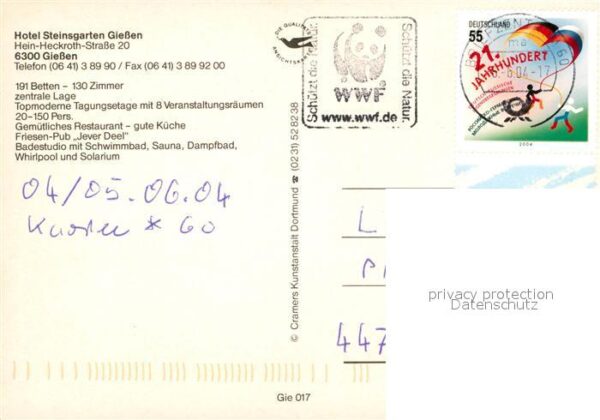 Hotel Steinsgarten Gießen
Hein-Heckroth-Straße 20
6300 Gießen
Telefon (06 41) 3 89 90 / Fax (06 41) 3 89 92 00
191 Betten – 130 Zimmer
zentrale Lage
Topmoderne Tagungsetage mit 8 Veranstaltungsräumen
20–150 Pers.
Gemütliches Restaurant – gute Küche
Friesen-Pub „Jever Deel"
Badestudio mit Schwimmbad, Sauna, Dampfbad,
Whirlpool und Solarium
04/05.06.04
* 60
© Cramers Kunstanstalt Dortmund (0231) 52 82 38
Gie 017
DIE QUALITÄTS
ANSICHTSKARTE
Schützt die Natur.
WWF
Schützt die Natur.
www.wwf.de
DEUTSCHLAND
55
21.
JAHRHUNDERT
2004
L
447
privacy protection
Datenschutz